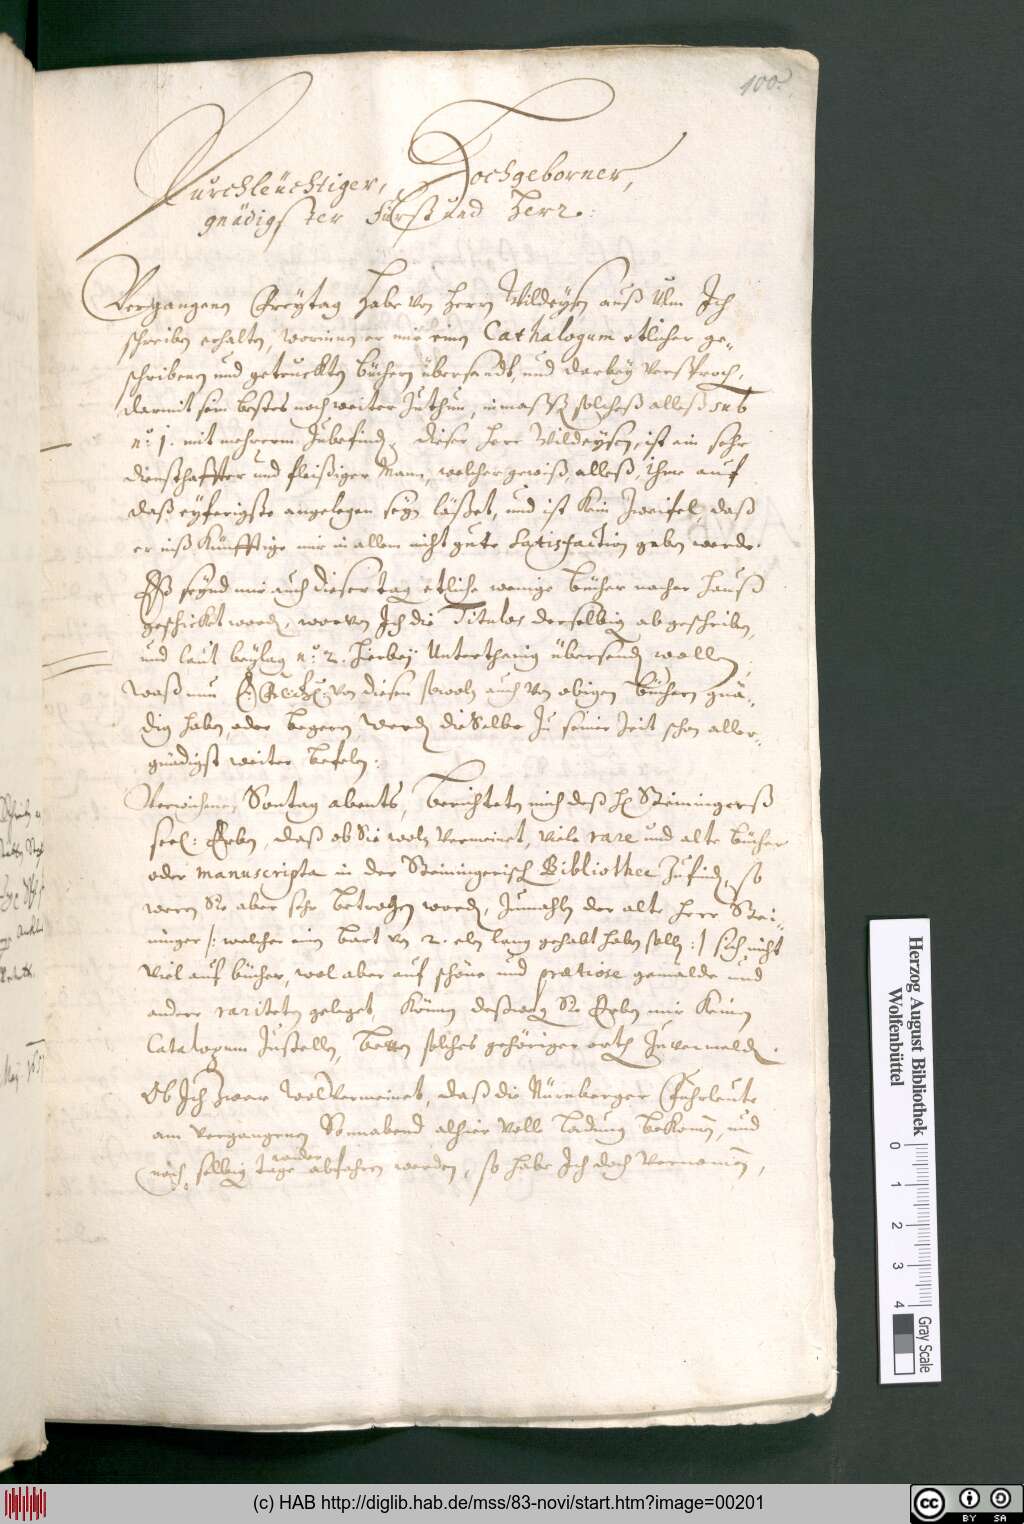 100.
Durchleüchtiger, Hochgeborner,
gnädigster Fürst und Herr.:
Vergangenen Freÿtag habe von Herrn Wildeÿsen auß Ulm Ich
schreiben erhalten, worinnen er mir einen Cathalogum etlicher ge-
schribenen und getruckten büchern übersandt, und darbeÿ versproch,
darmit sein bestes noch weiter zuthun, inmaßß solcheß alleß sub
n.º 1. mit mehrerm zubefinden. Dieser Herr Wildeÿsen, ist ein sehr
diensthaffter und fleißiger Mann, welcher gewiß, alleß, ihme auf
daß eÿferigste angelegen seÿn läßet, und ist kein Zweifel, daß
er inß künfftige mir in allem nicht gute Satisfaction geben werde.
Eß seÿnd mir auch dieser tag etliche wenige bücher nacher hauß
geschicket worden, worvon Ich die Titulos derselbig abgeschrieben,
und laut beÿlag n.º 2. hierbeÿ Unterthänig übersenden wollen
waß nun von diesen sowoln auch von obigen büchern gnä-
dig haben, oder begeren werden die Selbe zu seiner Zeit schon aller-
gnädigst weiter befelen:
Verwichenen Sontag abents, berichteten mich deß H. Steiningerß
seel: Erben, daß ob Sie woln vermeinet, viele rare und alte bücher
oder manuscripta in der Steiningerisch Bibliothec zufinden, so
weren Sie aber sehr betrogen worden, zumahln der alte Herr Stei-
ninger /: welcher einen bart von 2. eln lang gehabt haben solle :/ sich nicht
viel auf bücher, wol aber auf schöne und pretiose gemälde und
andere rariteten geleget, können deßweg Sie Erben mir keinen
Catalogum zustellen, betten solches gehöriger orth zuvermelden.
Ob Ich zwar wol vermeinet, daß die Nürnberger Fuhrleute
am vergangenen Sonnabend alhier volle Ladung bekomen, und
noch selbig tage wider abfahren werden, so habe Ich doch vernomen,
Herzog August Bibliothek
Wolfenbüttel
0 1 2 3 4
Gray Scale
(c) HAB http://diglib.hab.de/mss/83-novi/start.htm?image=00201
cc BY SA